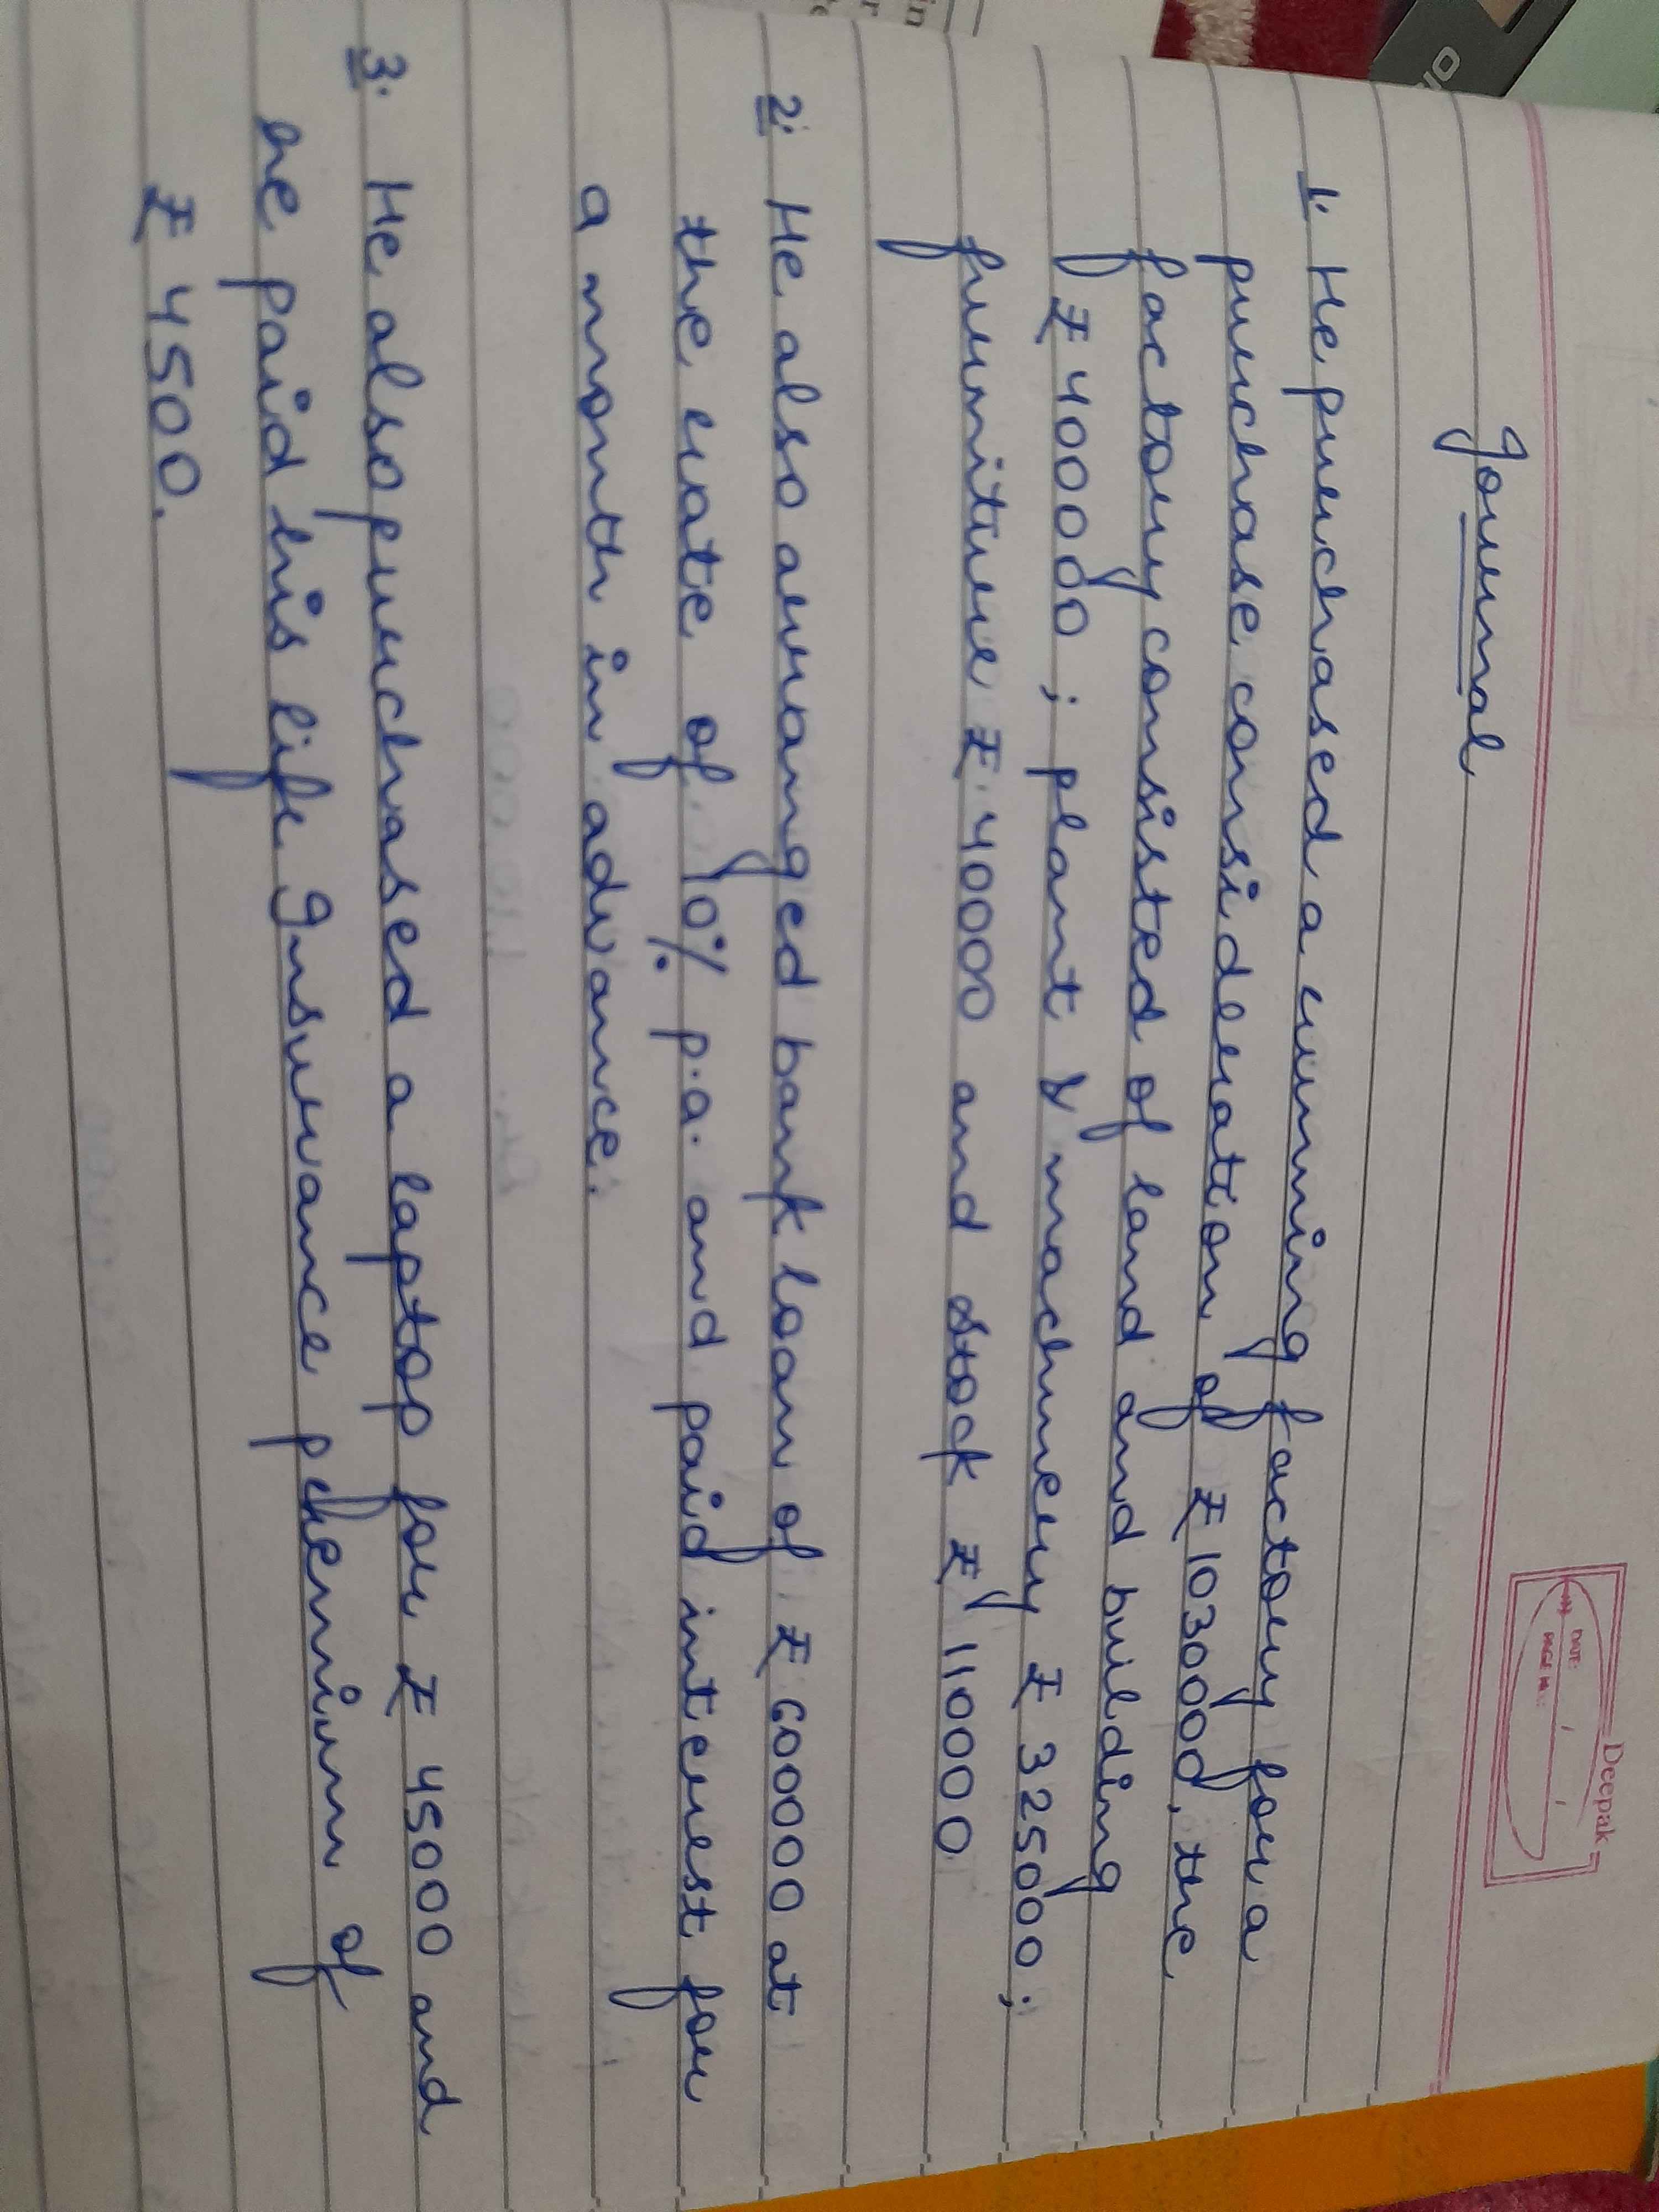 Deepak
DATE: / /
PAGE NO.:
Journal
1. He purchased a running factory for a
purchase consideration of ₹ 1030000, the
factory consisted of land and building
₹ 400000 ; plant & machinery ₹ 325000 ;
furniture ₹ 40000 and stock ₹ 110000
2. He also arranged bank loan of ₹ 600000 at
the rate of 10% p.a. and paid interest for
a month in advance.
3. He also purchased a laptop for ₹ 45000 and
he paid his life Insurance premium of
₹ 4500.